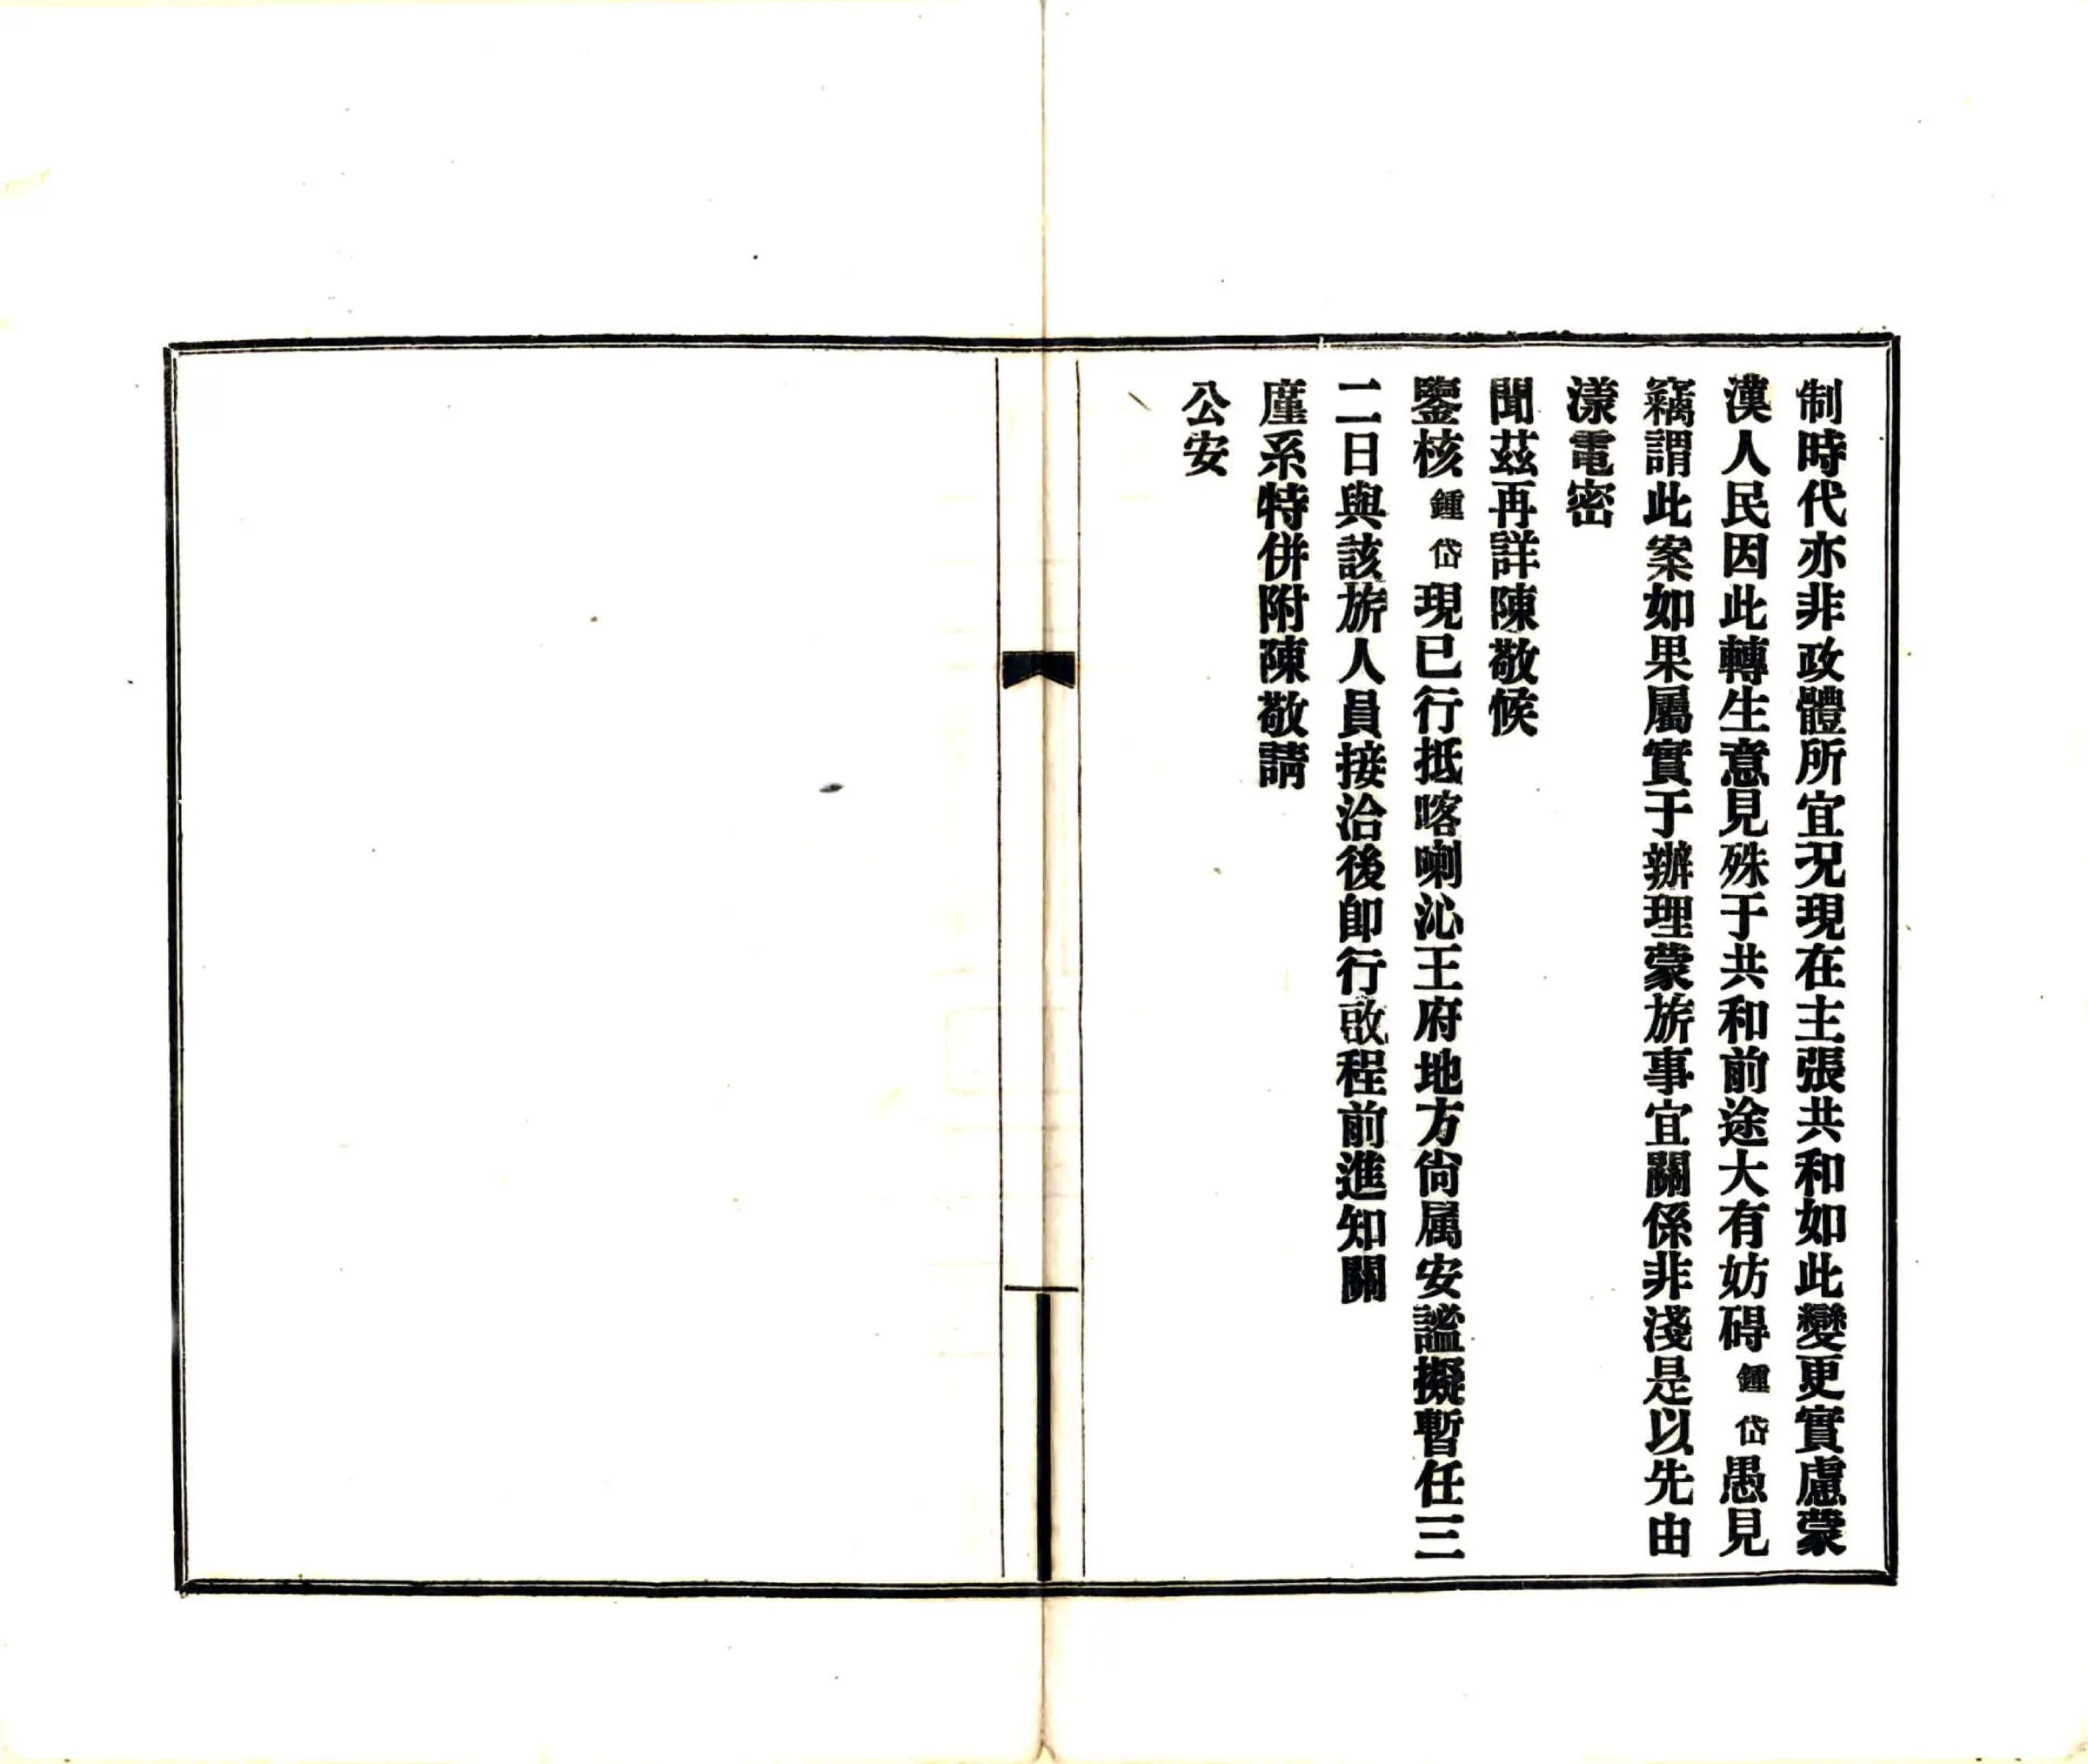 制時代亦非政體所宜况現在主張共和如此變更實慮蒙
漢人民因此轉生意見殊于共和前途大有妨碍鍾岱愚見
竊謂此案如果屬實于辦理蒙旂事宜關係非淺是以先由
漾電密
聞茲再詳陳敬候
鑒核鍾岱現已行抵喀喇沁王府地方尙属安謐擬暫住三
二日與該旂人員接洽後卽行啟程前進知關
廑系特併附陳敬請
公安